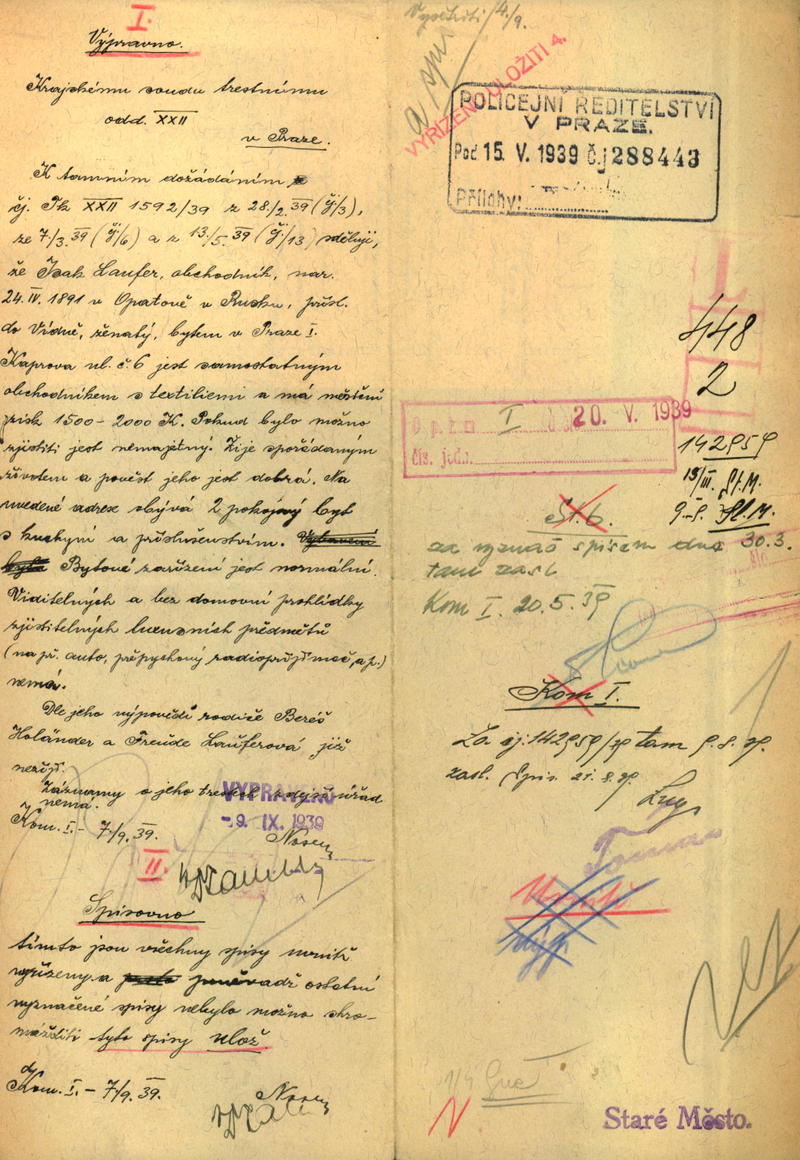 I.
Výpravno.
Krajskému soudu trestnímu
odd. XXII
v Praze.
K tamním dožádáním
čj. Tk XXII 1592/39 z 28./2. 39 (Čj/3),
ze 7/3. 39 (Čj/6) a z 13/5. 39 (Čj/13) sděluji,
že Isak Laufer, obchodník, nar.
24. IV. 1891 v Opatově v Rusku, přísl.
do Vídně, ženatý, bytem v Praze I.
Kaprova ul. č. 6 jest samostatným
obchodníkem s textiliemi a má měsíční
zisk 1500 - 2000 K. Pokud bylo možno
zjistiti jest nemajetný. Žije spořádaným
životem a pověst jeho jest dobrá. Na
uvedené adrese obývá 2 pokojový byt
s kuchyní a příslušenstvím.
Bytové zařízení jest normální.
Viditelných a bez domovní prohlídky
zjistitelných luxusních předmětů
(na př. auto, přepychový radiopřijímač, a p.)
nemá.
Dle jeho výpovědi rodiče Bereš
Holänder a Freude Lauferová již
nežijí.
Záznamy o jeho trestech zdejší úřad
nemá.
VYPRAVENO
-9. IX. 1939
Kom. I. - 7/9. 39.
II.
Spisovno
tímto jsou všechny spisy uvnitř
vyřízeny a poněvadž ostatní
vyznačené spisy nebylo možno shro-
mážditi tyto spisy ulož.
Kom. I. - 7/9. 39.
Vyřízeno /4./9.
a spi
VYŘÍZENO ULOŽITI 4.
POLICEJNÍ ŘEDITELSTVÍ
V PRAZE.
Pod 15. V. 1939 Čj 288443
Přílohy:
448
2
I 20. V. 1939
čís. jed.
142959
13/III. St.M.
9.-5. St.M.
St. 6.
za vyznač spisem dne 30.3.
tam zasl
Kom I. 20.5.39
Kom I.
Za čj. 142959/39 tam 9. 5. 39.
zasl. spis. 21. 8. 39.
Staré Město.